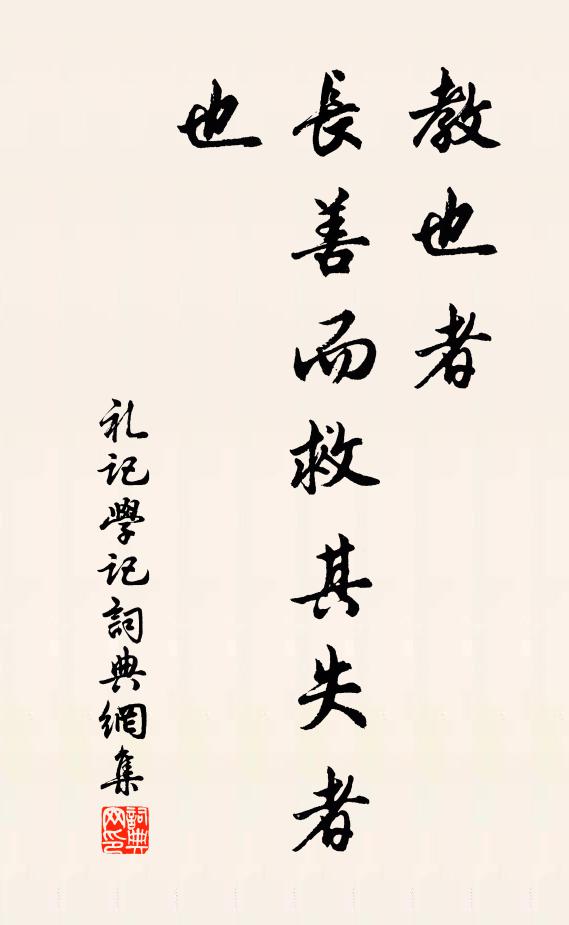 教也者
長善而救其失者
也
礼记學记詞典網集
詞典网印